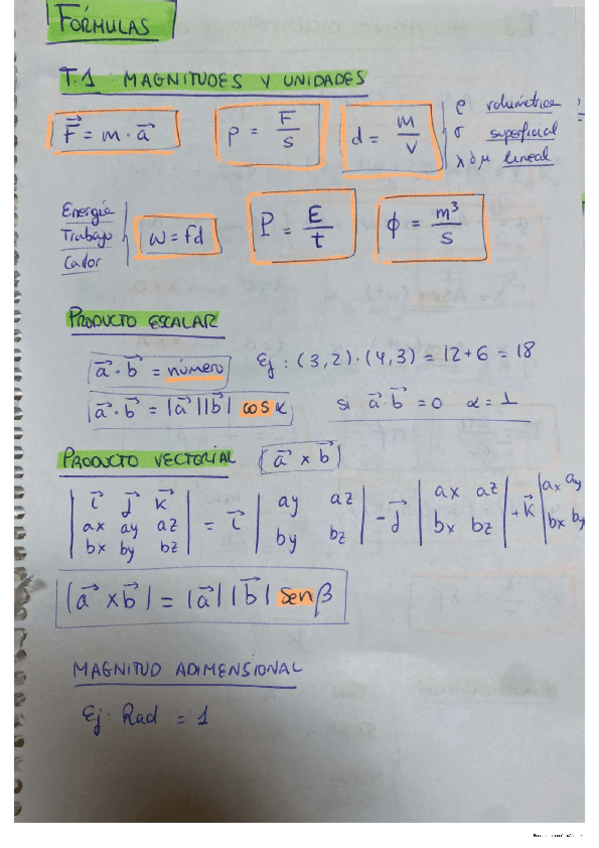 FÓRMULAS
T.1 MAGNITUDES Y UNIDADES
F⃗ = m · a⃗
P = F/S
d = m/V
ρ volumétrica
σ superficial
λ ó μ lineal
Energía
Trabajo
Calor
W = Fd
P = E/t
ϕ = m³/s
PRODUCTO ESCALAR
a⃗ · b⃗ = número Ej: (3,2)·(4,3) = 12+6 = 18
a⃗ · b⃗ = |a⃗||b⃗| cos α si a⃗ · b⃗ = 0 α = ⊥
PRODUCTO VECTORIAL (a⃗ × b⃗)
| i⃗ j⃗ k⃗ | = i⃗ | ay az | - j⃗ | ax az | + k⃗ | ax ay
| ax ay az | | by bz | | bx bz | | bx by
| bx by bz |
|a⃗ × b⃗| = |a⃗| |b⃗| sen β
MAGNITUD ADIMENSIONAL
Ej: Rad = 1